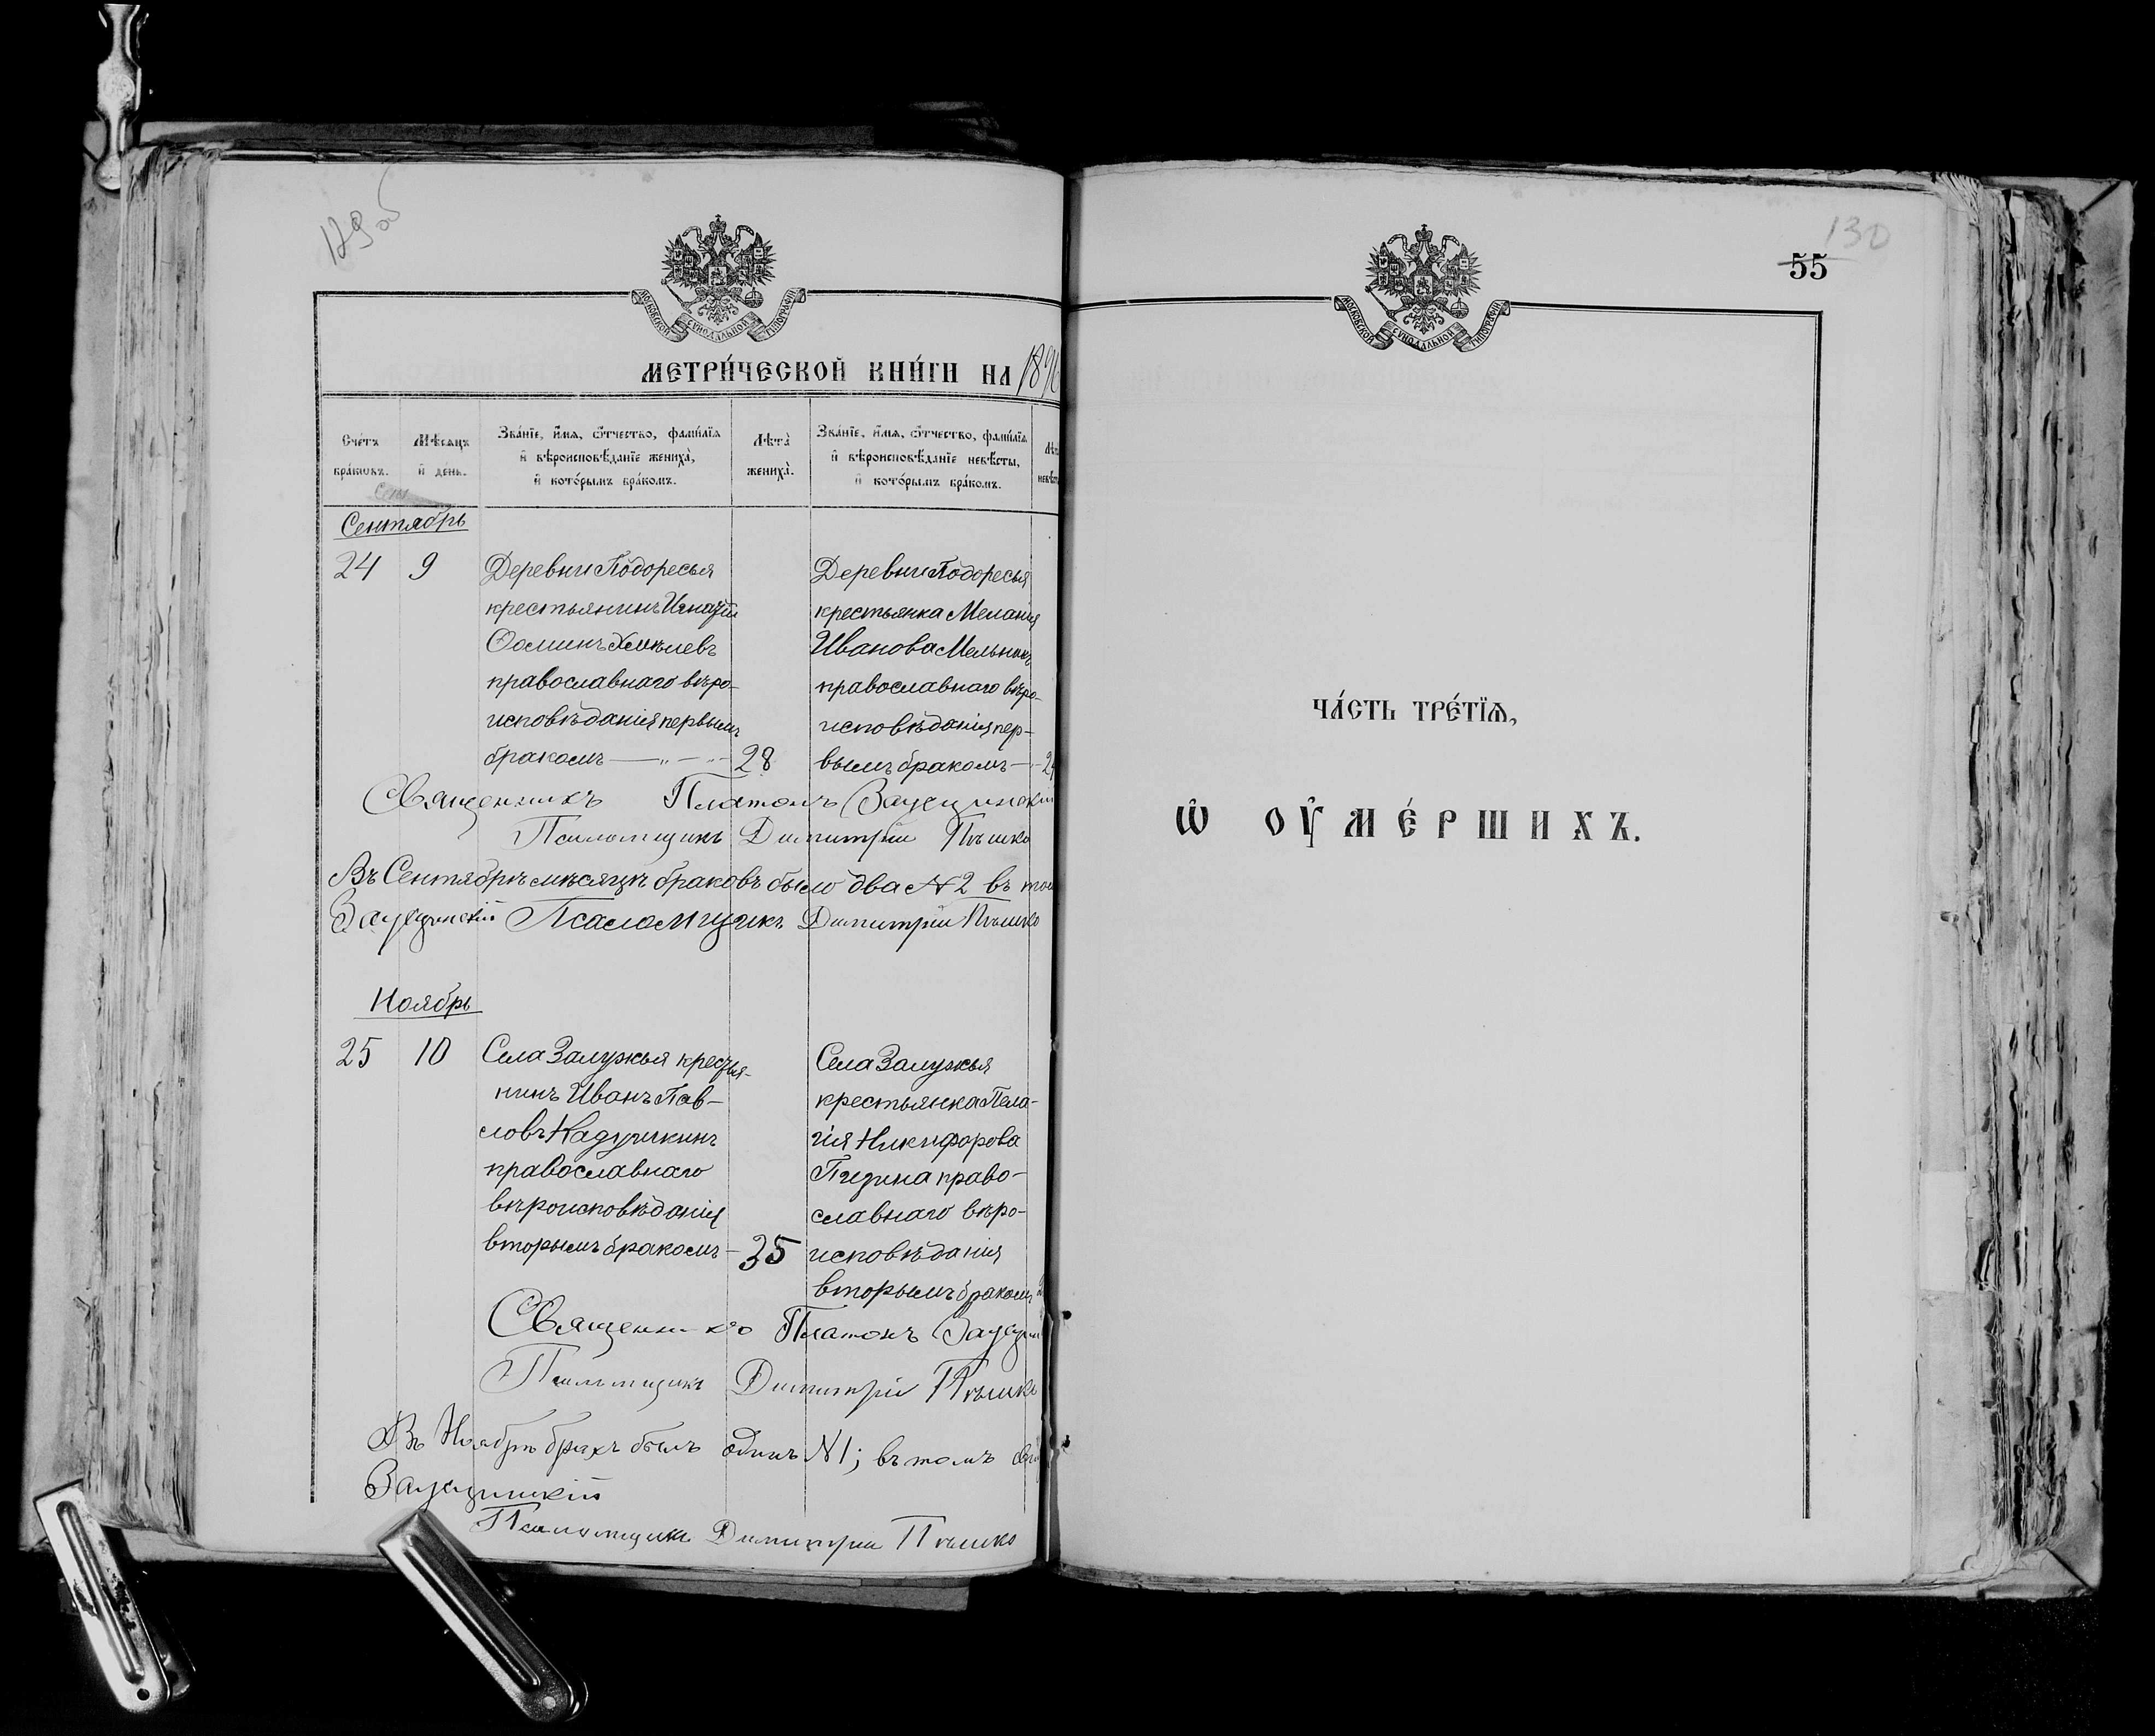 129 об
130
55
МОСКОВСКОЙ СѴНОДАЛЬНОЙ ТИПОГРАФІИ
МОСКОВСКОЙ СѴНОДАЛЬНОЙ ТИПОГРАФІИ
МЕТРИ́ЧЕСКОЙ КНИ́ГИ НА 1896
Сче́тъ бра́ковъ.
Мѣ́сяцъ и҆ де́нь.
Зва́нїе, и҆́мѧ, ѻ҆́тчество, фами́лїѧ и҆ вѣроисповѣ́данїе жениха̀, и҆ кото́рымъ бра́комъ.
Лѣта̀ жениха̀.
Зва́нїе, и҆́мѧ, ѻ҆́тчество, фами́лїѧ и҆ вѣроисповѣ́данїе невѣ́сты, и҆ кото́рымъ бра́комъ.
Сентябрь
24 9 Деревни Подоресья
крестьянинъ Игнатій
Ѳоминъ Хмѣлевъ
православнаго вѣро-
исповѣданія первымъ
бракомъ 28
Деревни Подоресья
крестьянка Меланія
Иванова Мельникъ
православнаго вѣро-
исповѣданія пер-
вымъ бракомъ
Священникъ Платонъ Заусцинскій
Псаломщикъ Димитрій Пѣшко
Въ Сентябрѣ мѣсяцѣ браковъ было два №2 въ том
Заусцинскій Псаломщикъ Димитрій Пѣшко
Ноябрь
25 10 Села Залужья крестья-
нинъ Иванъ Пав-
ловъ Кадушкинъ
православнаго
вѣроисповѣданія
вторымъ бракомъ - 35
Села Залужья
крестьянка Пела-
гія Никифорова
православнаго вѣро-
исповѣданія
вторымъ бракомъ
Священникъ Платонъ Заусцин
Псаломщикъ Димитрій Пѣшко
Въ Ноябрѣ бракъ былъ одинъ №1; въ томъ
Заусцинскій
Псаломщикъ Димитрій Пѣшко
ЧА́СТЬ ТРЕ́ТЇѦ,
Ѽ ОУ҆МЕ́РШИХЪ.